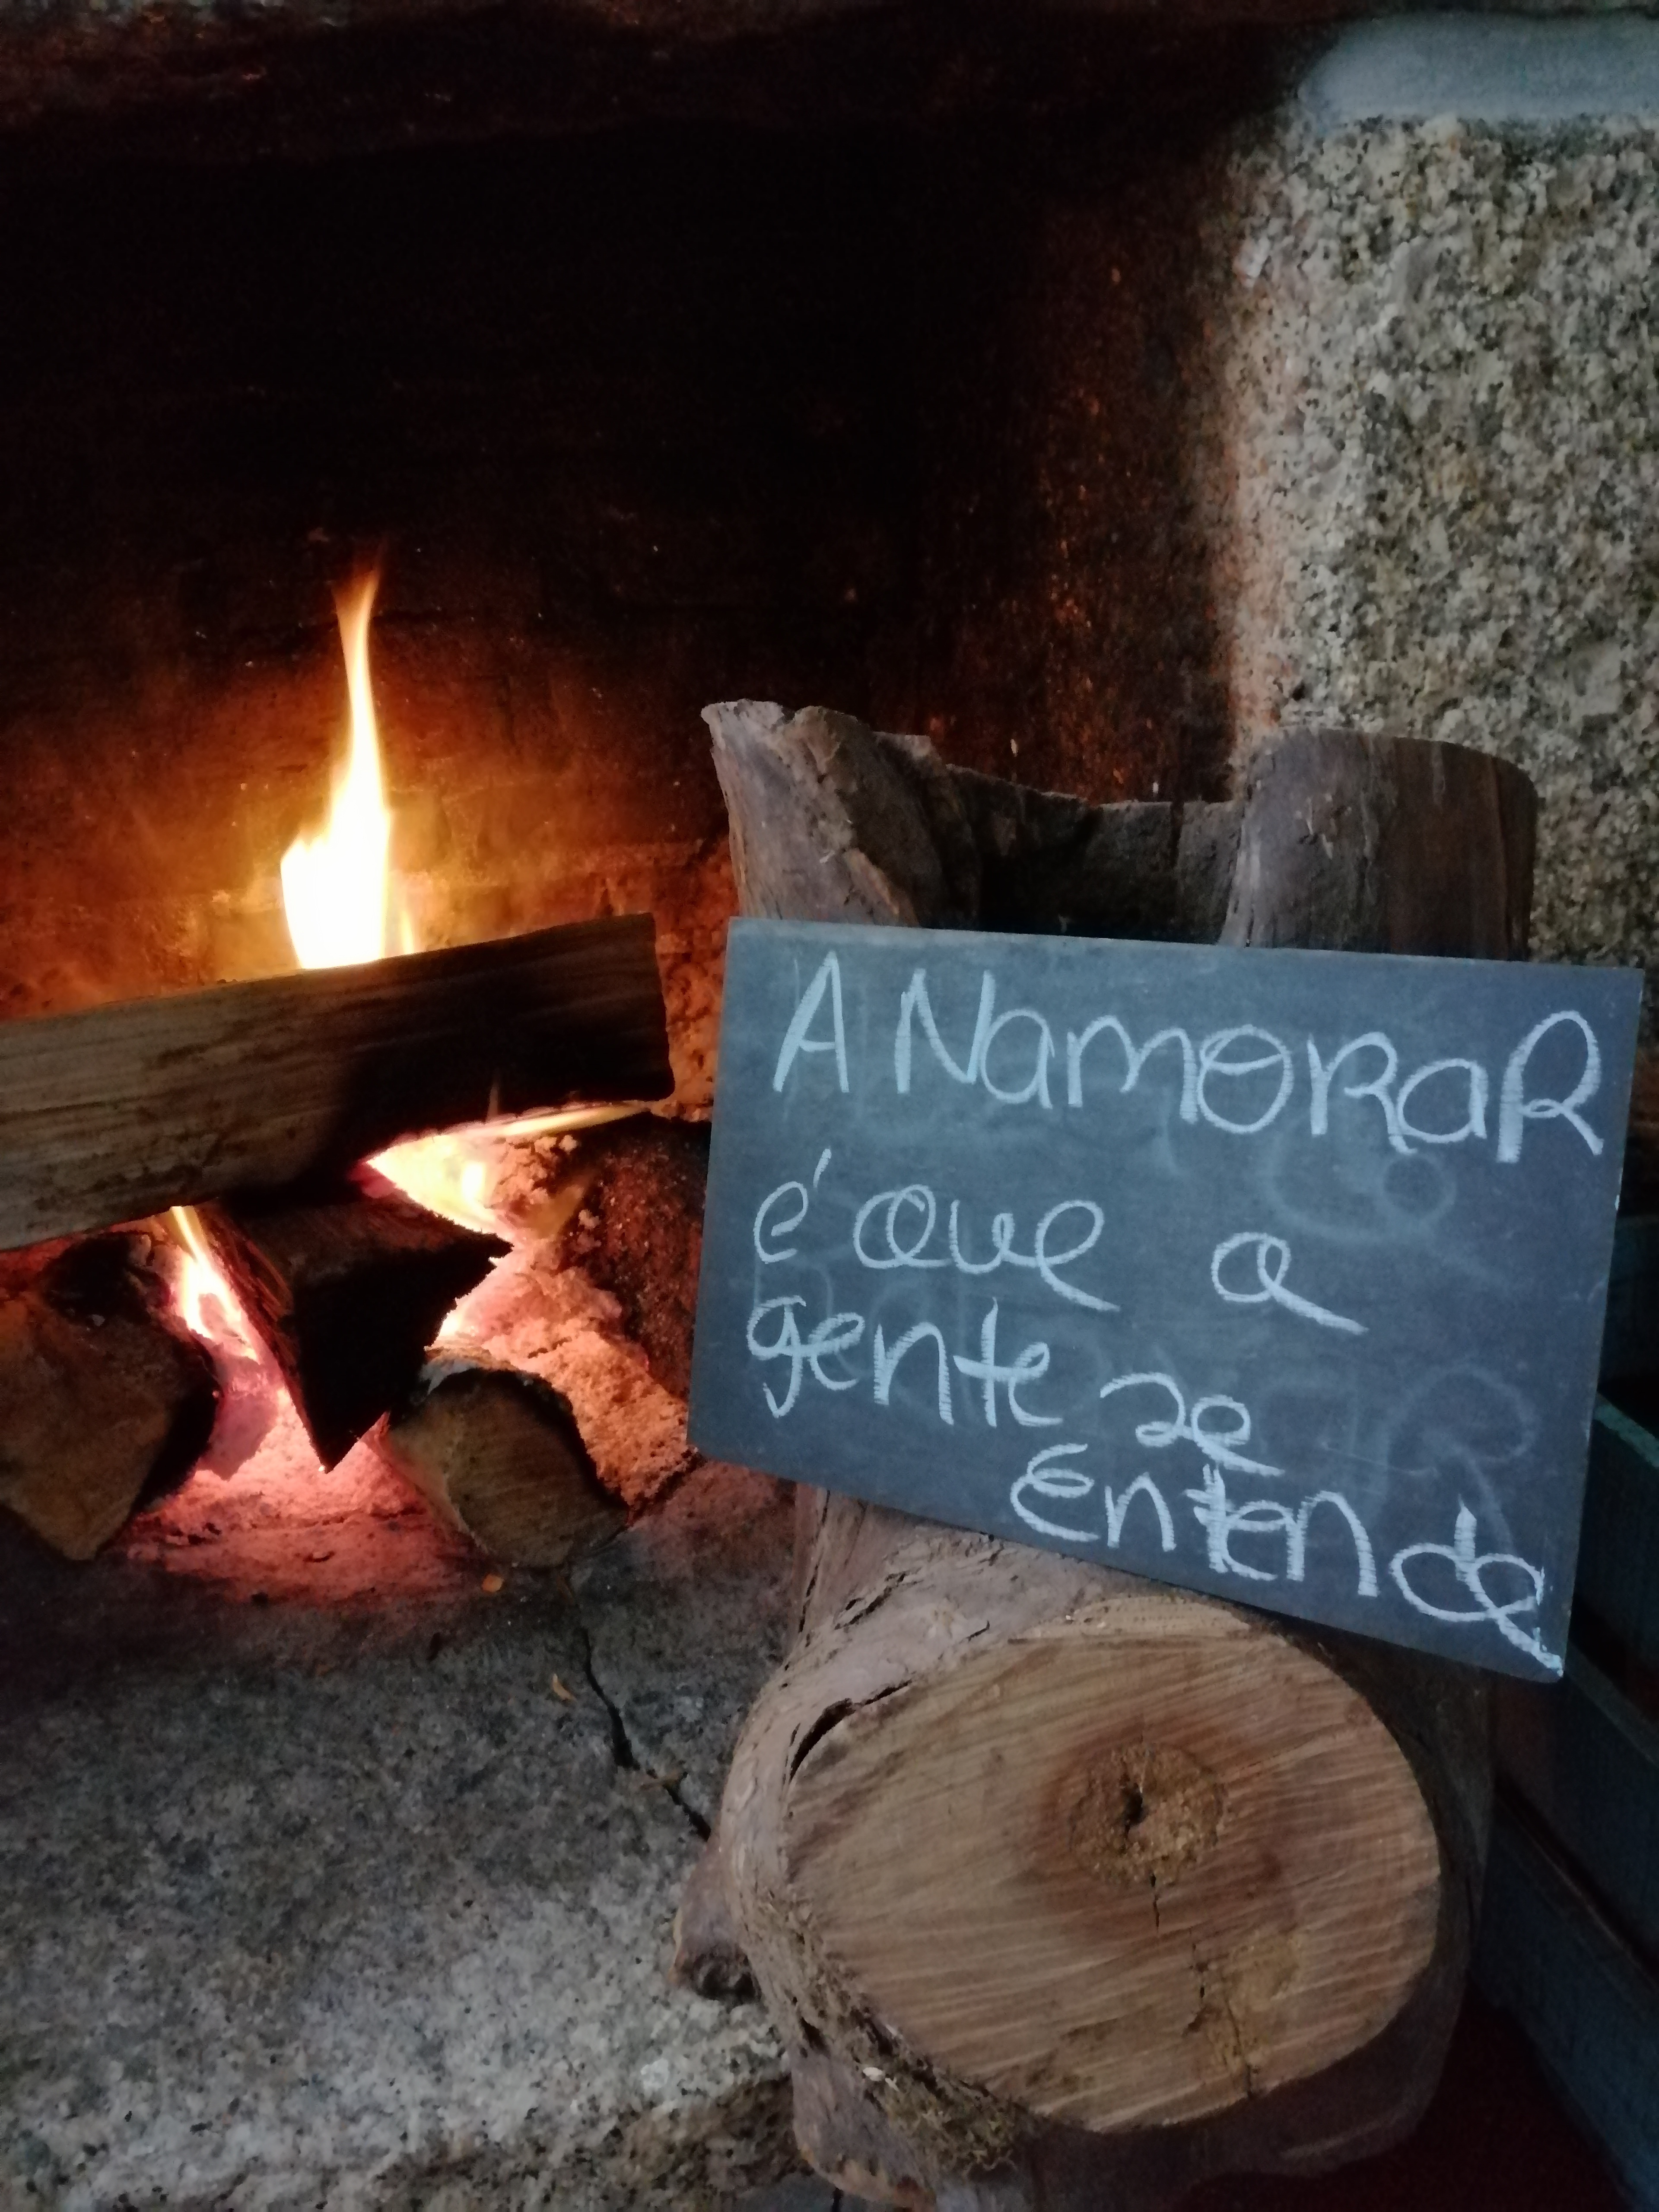 A NamORaR
é que a
gente se
Entende